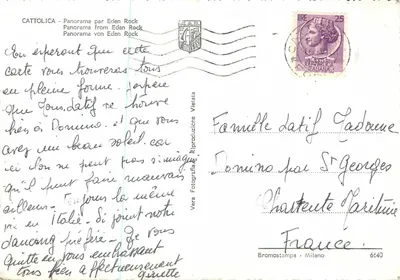 CATTOLICA - Panorama par Eden Rock
Panorama from Eden Rock
Panorama von Eden Rock
En espérant que cette
carte vous trouveras tous
en pleine forme. J'espère
que Tous se trouve
bien à Domino. et que vous
avez un beau soleil. car
ici l'on ne peut pas s'imaginer
qu'il peut faire mauvais
ailleurs. Toujours la même
vie en Italie. Si joint notre
dancing préféré. Je vous
quitte en vous embrassant
tous bien affectueusement
Ginette
Vera Fotografia - Riproduzione Vietata
25
ITALIANE
Famille Latif Tadome
Domino par St Georges
Charente Maritime
France.
Bromostampa - Milano
6640